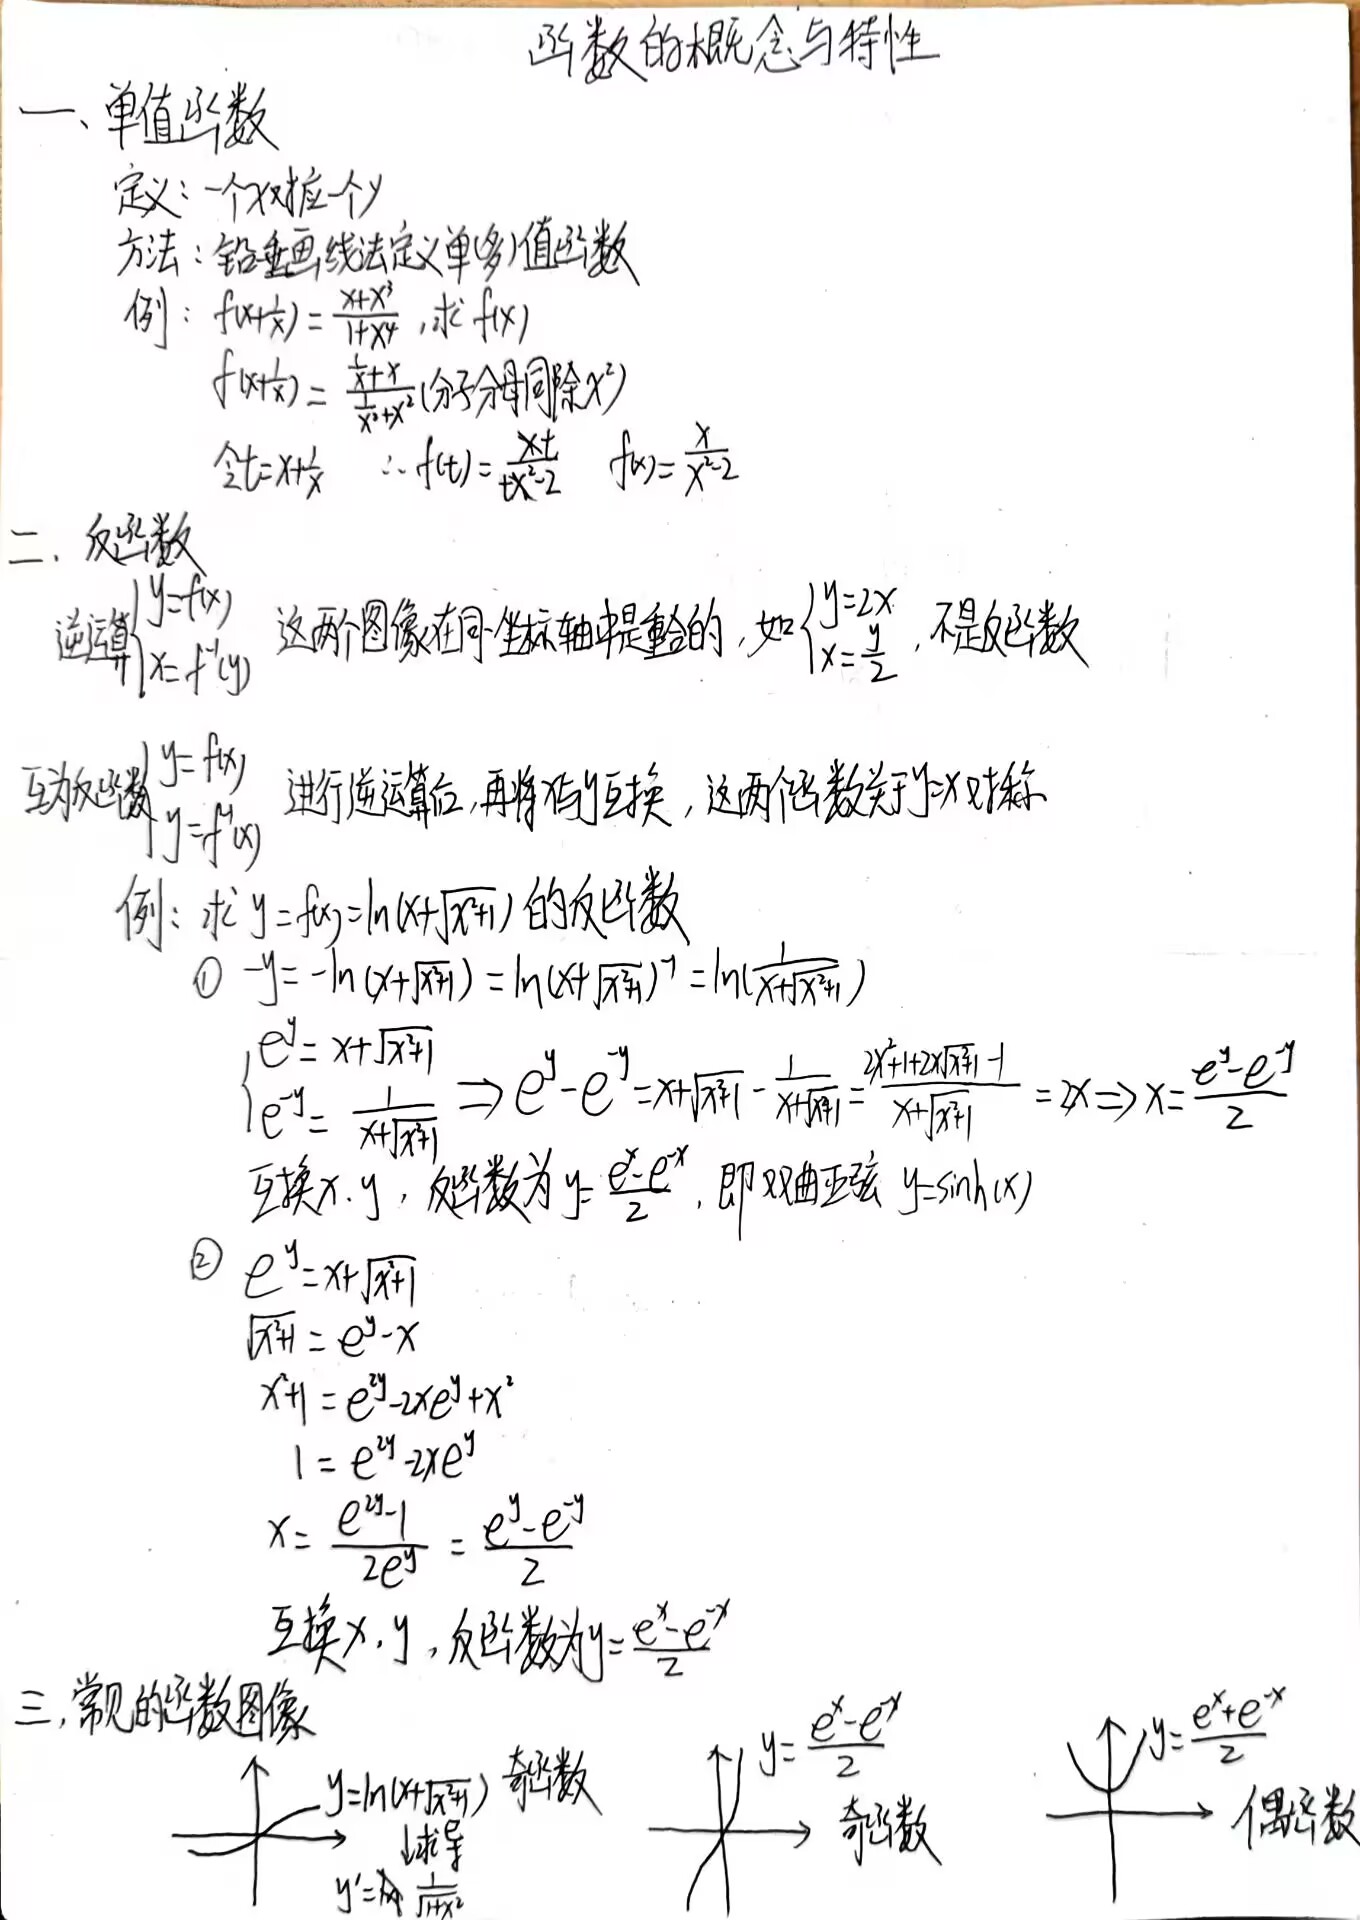 函数的概念与特性
一、单值函数
定义：一个x对应一个y
方法：铅垂画线法定义单(多)值函数
例：f(x+1/x)=(x+x³)/(1+x⁴)，求f(x)
f(x+1/x)=(1/x+x)/(1/x²+x²)(分子分母同除x²)
令t=x+1/x ∴f(t)=t/(t²-2) f(x)=x/(x²-2)
二、反函数
逆运算{y=f(x) x=f⁻¹(y) 这两个图像在同一坐标轴中是重合的，如{y=2x x=y/2，不是反函数
互为反函数{y=f(x) y=f⁻¹(x) 进行逆运算后，再将x与y互换，这两个函数关于y=x对称
例：求y=f(x)=ln(x+√(x²+1))的反函数
① -y=-ln(x+√(x²+1))=ln(x+√(x²+1))⁻¹=ln(1/(x+√(x²+1)))
{e^y=x+√(x²+1) e^(-y)=1/(x+√(x²+1)) ⇒e^y-e^(-y)=x+√(x²+1)-1/(x+√(x²+1))=(2x²+1+2x√(x²+1)-1)/(x+√(x²+1))=2x⇒x=(e^y-e^(-y))/2
互换x、y，反函数为y=(e^x-e^(-x))/2，即双曲正弦y=sinh(x)
② e^y=x+√(x²+1)
√(x²+1)=e^y-x
x²+1=e^(2y)-2xe^y+x²
1=e^(2y)-2xe^y
x=(e^(2y)-1)/(2e^y)=(e^y-e^(-y))/2
互换x、y，反函数为y=(e^x-e^(-x))/2
三、常见的函数图像
y=ln(x+√(x²+1)) 奇函数
↓求导
y'=1/√(1+x²)
y=(e^x-e^(-x))/2
奇函数
y=(e^x+e^(-x))/2
偶函数